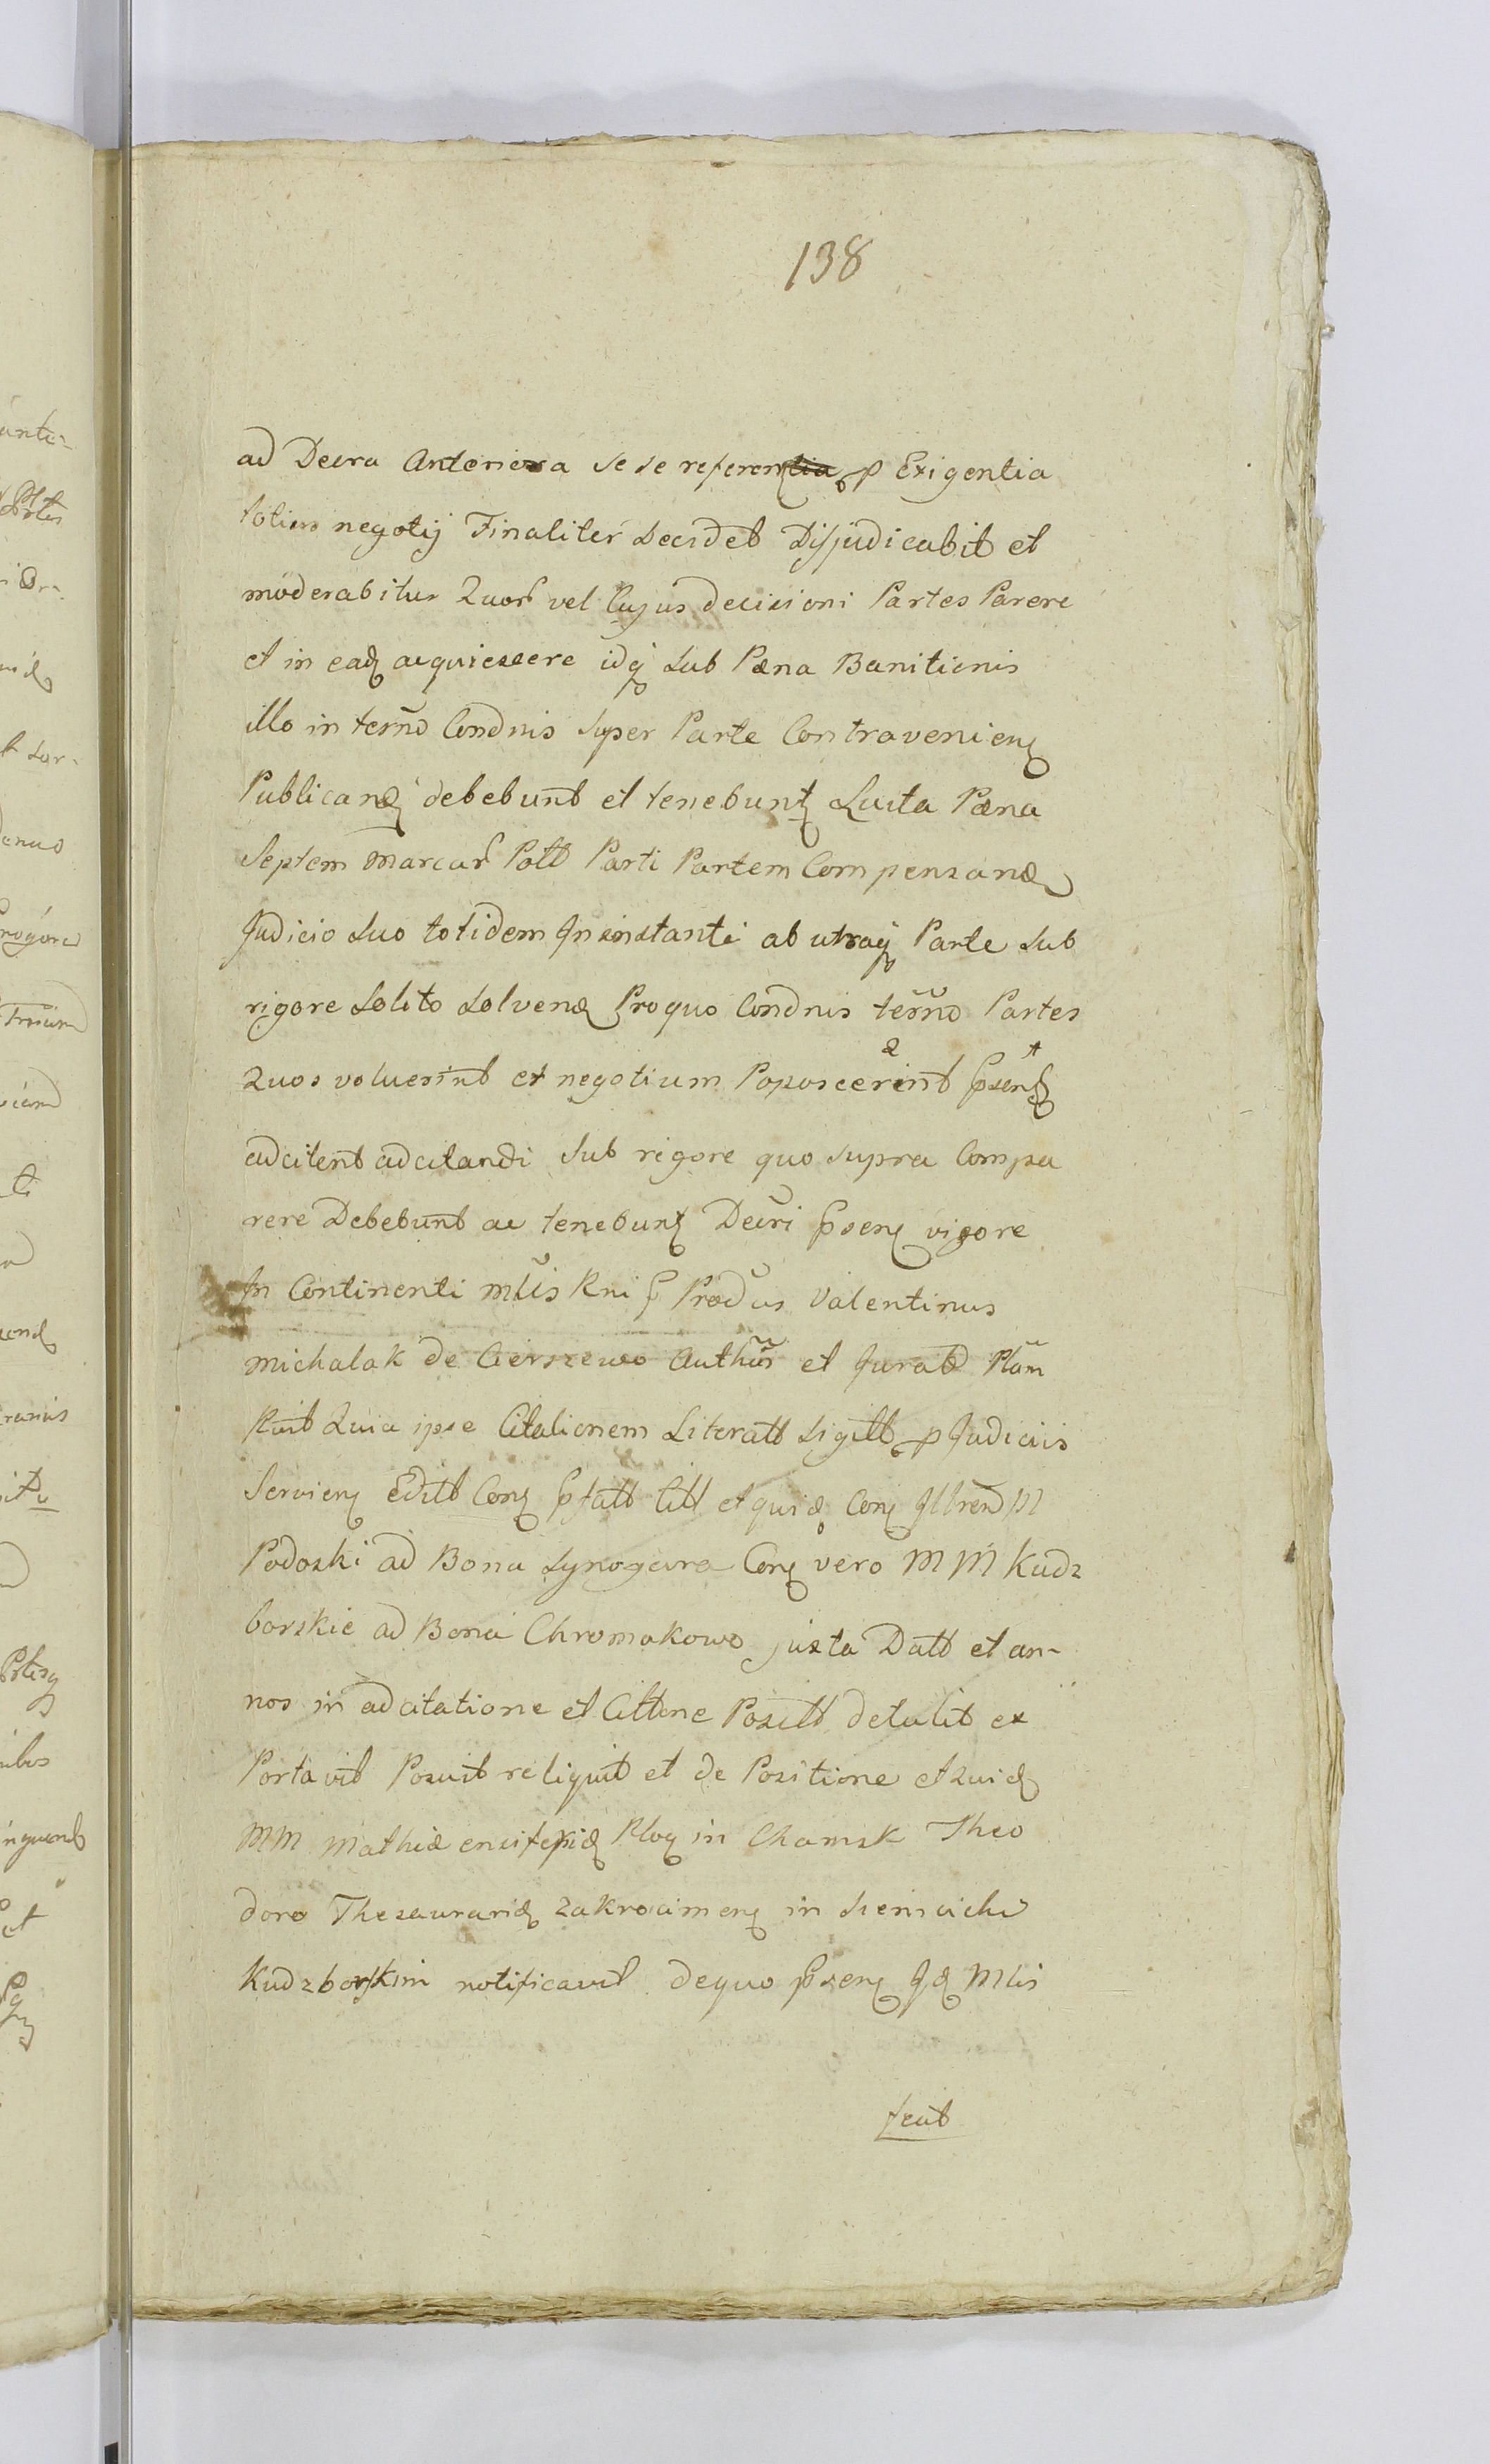 138
ad Decra Anteriora se se referen p Exigentia
totius negotij Finaliter Decidet Disjudicabit et
moderabitur Quor vel Cujus decisioni Partes Parere
et in eaq acquiescere idq sub Pæna Banitionis
illo in termo Condnis super Parte Contravenien
Publicand debebunt et tenebunt Lucta Pæna
Septem Marcar Poll Parti Partem Compensand
Judicio suo totidem In instanti ab utraq Parte sub
rigore Solito Solvend Proquo Condnis termo Partes
Quos voluerint et negotium Poposcerint psen
adcitent adcitandi sub rigore quo supra Compa
rere Debebunt ac tenebunt Decri psen vigore
In Continenti Mlis Rni Produs Valentinus
Michalak de Cierszewo Authus et Jurat Plam
Rcit Quia ipse Citationem Literatt Sigitt p Judiciis
Servien Editt Con pfatt Citt et quid Con Illrem M
Podoski ad Bona Synogura Con vero MM Kudz
borskie ad Bona Chromakowo juxta Datt et an-
nos in adcitatione et Cittone Positt detulit ex
Portavit Posuit reliquit et de Positione et Quid
MM Mathiæ ensiferid Ploc in Chamsk Theo
doro Thesaurarid Zakrocimen in
Kudzborskim notificavit dequo psen Id Mlis
fecit